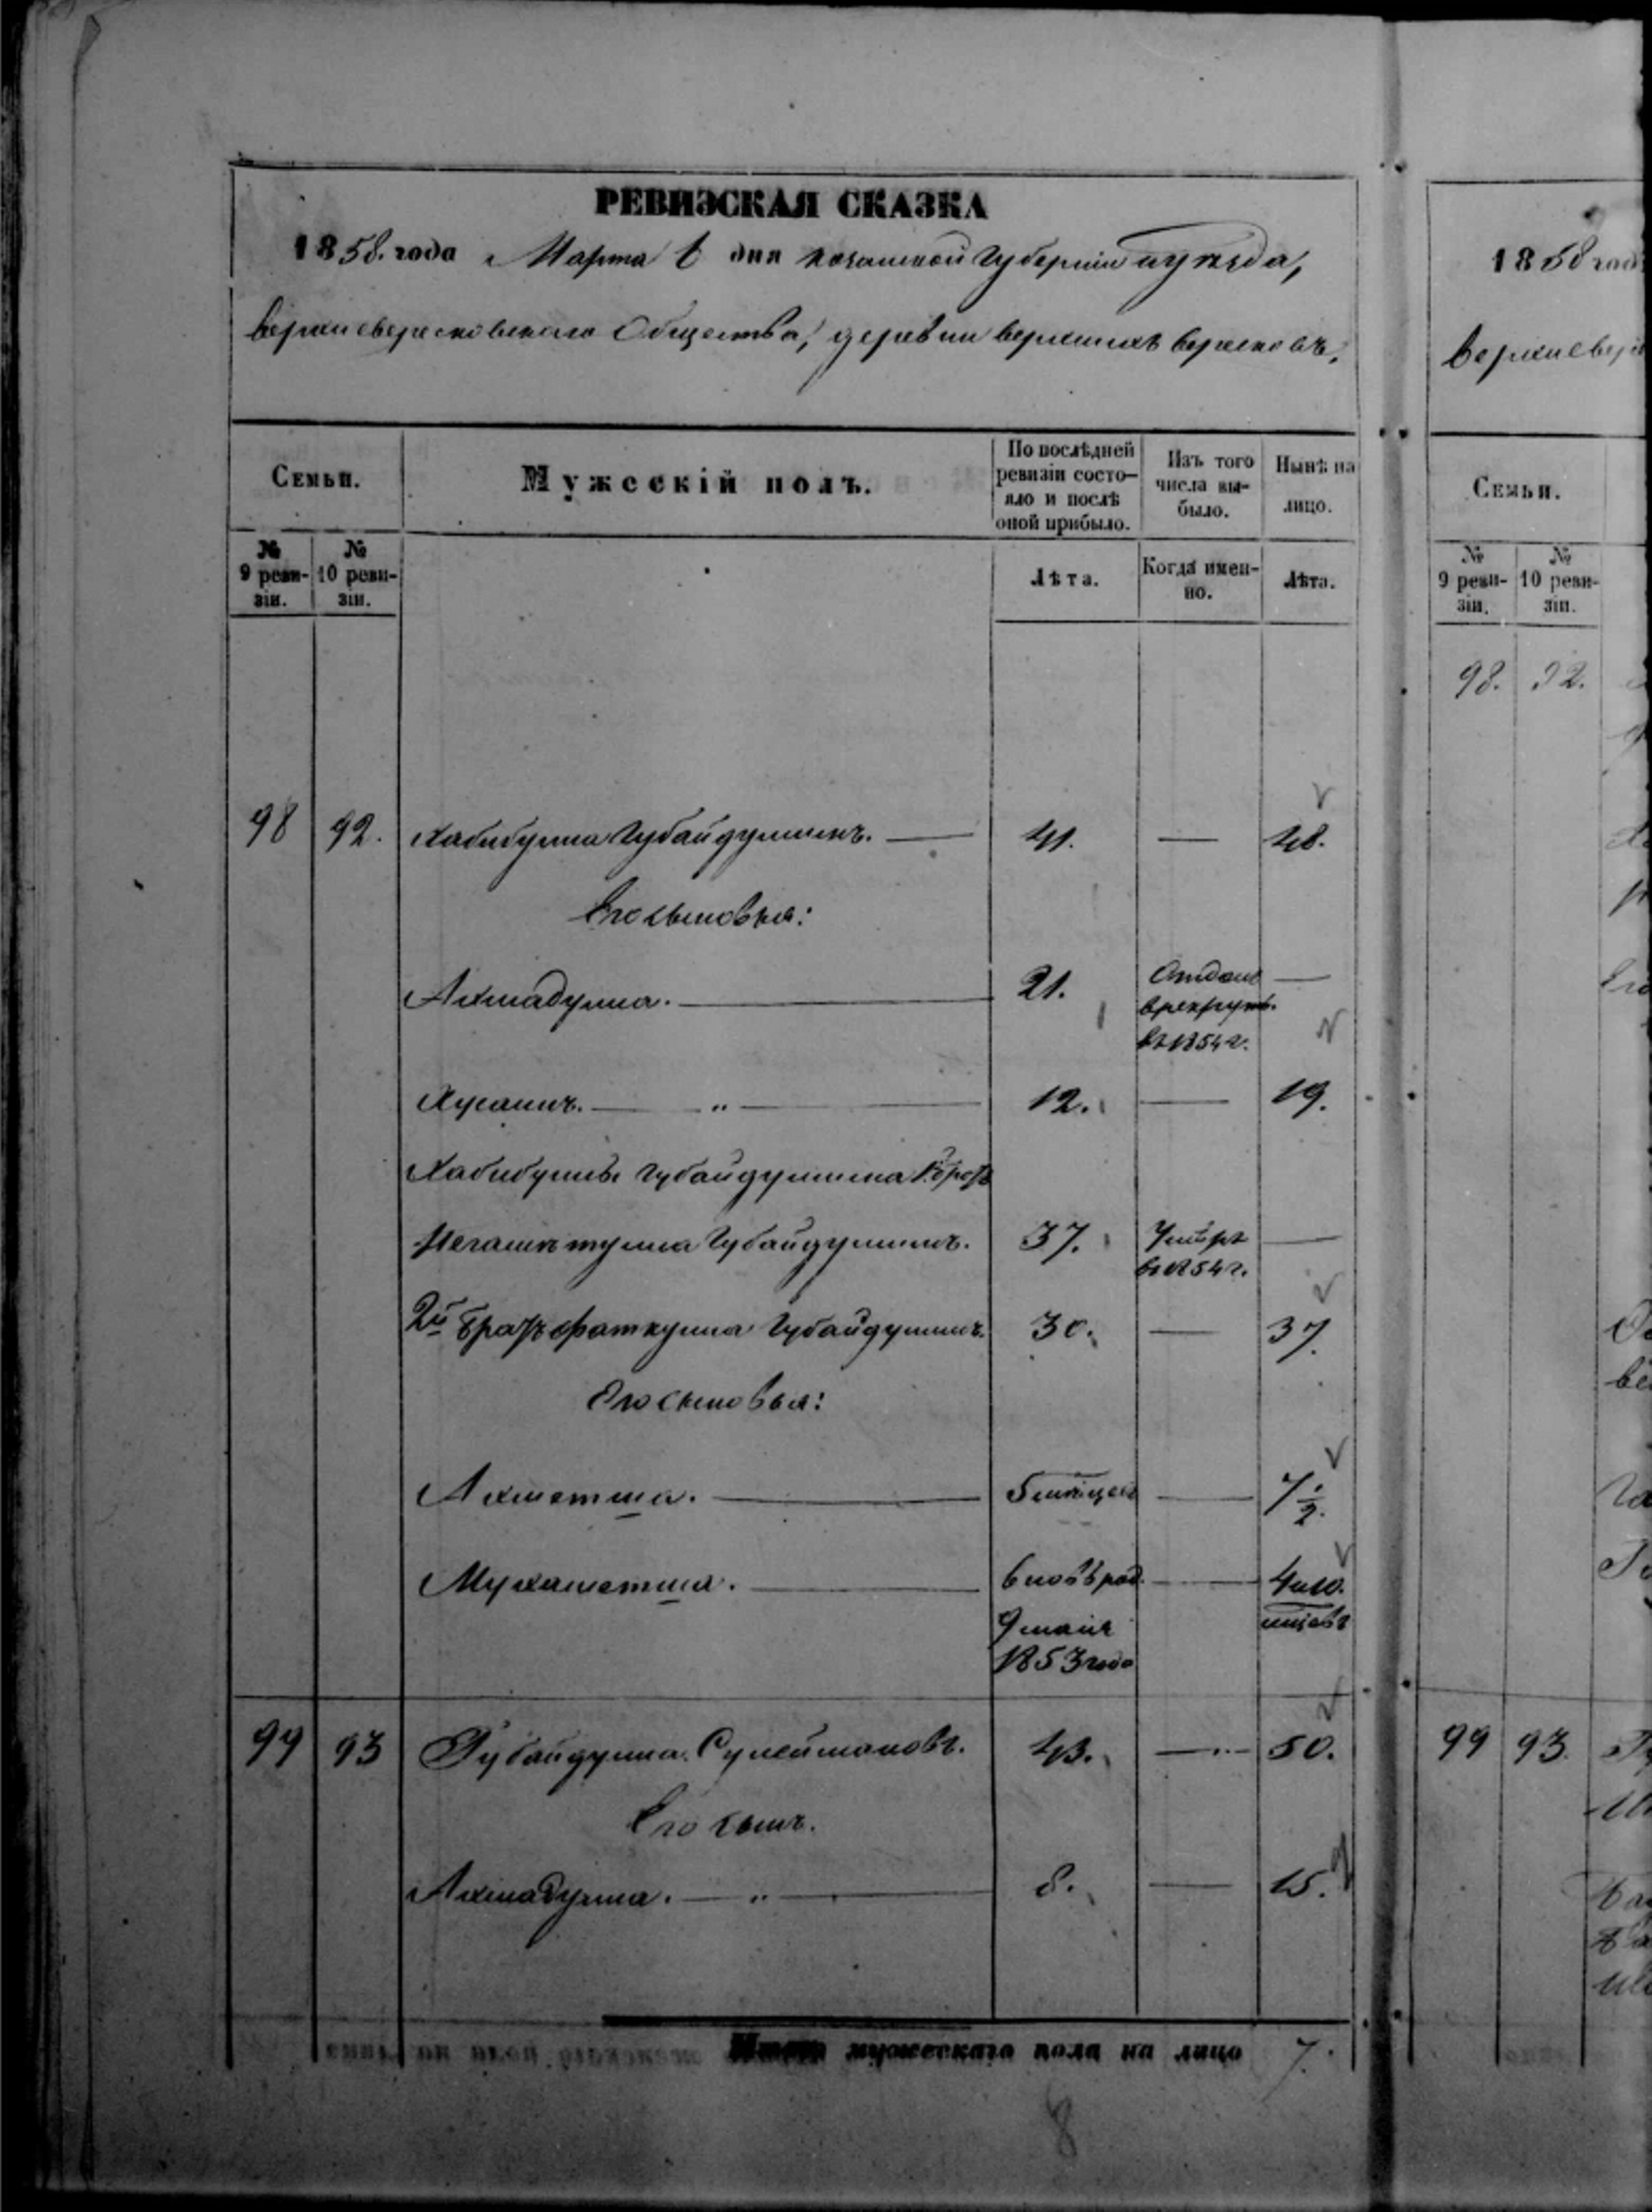 РЕВИЗСКАЯ СКАЗКА
1858. года Марта 1 дня Казанской Губерніи и уѣзда,
Верхневерезковскаго Общества, деревни Верхнихъ Верезковъ,
Семьи.
Мужескій полъ.
По послѣдней ревизіи состояло и послѣ оной прибыло.
Изъ того числа выбыло.
Нынѣ на лицо.
№ 9 ревизіи.
№ 10 ревизіи.
Лѣта.
Когда именно.
Лѣта.
98 92. Хабибулла Губайдуллинъ. — 41. — 48.
Его сыновья:
Ахмадулла. — 21. Отданъ —
в рекруты.
въ 1854 г.
Хусаинъ. — „ — 12. — 19.
Хабибуллы Губайдуллина 1. братъ
Губайдуллинъ. 37. Умеръ —
въ 1854 г.
2й братъ Фаткулла Губайдуллинъ. 30. — 37.
Его сыновья:
Ахметша. — 5 мѣсяцевъ — 7 1/2.
Мухаметша. — вновь род. — 4 и 10.
9 маія мцовъ
1853 года
99 93 Губайдулла Сулеймановъ. 43. — 50.
Его сынъ.
Ахмадулла. — „ — 8. — 15.
Итого мужескаго пола на лицо 7.
8
1858 год
Верхневере
Семьи.
№ 9 ревизіи.
№ 10 ревизіи.
98. 92.
99 93.